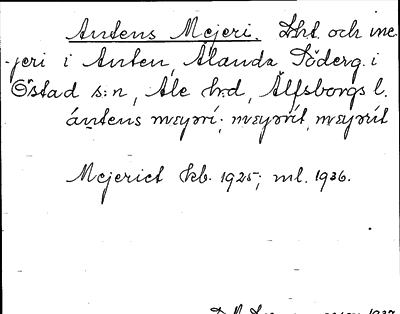 Antens Mejeri. Lht. och me-
-jeri i Anten, Alanda Söderg. i
Östad s:n, Ale h:d, Älfsborgs l.
ántens
Mejeriet kb. 1925; ml. 1936.